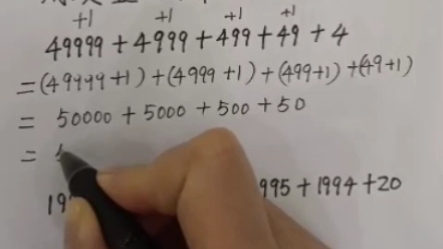 +1 +1 +1 +1
49999 + 4999 + 499 + 49 + 4
= (49999+1) + (4999+1) + (499+1) + (49+1)
= 50000 + 5000 + 500 + 50
=
19 995 + 1994 + 20